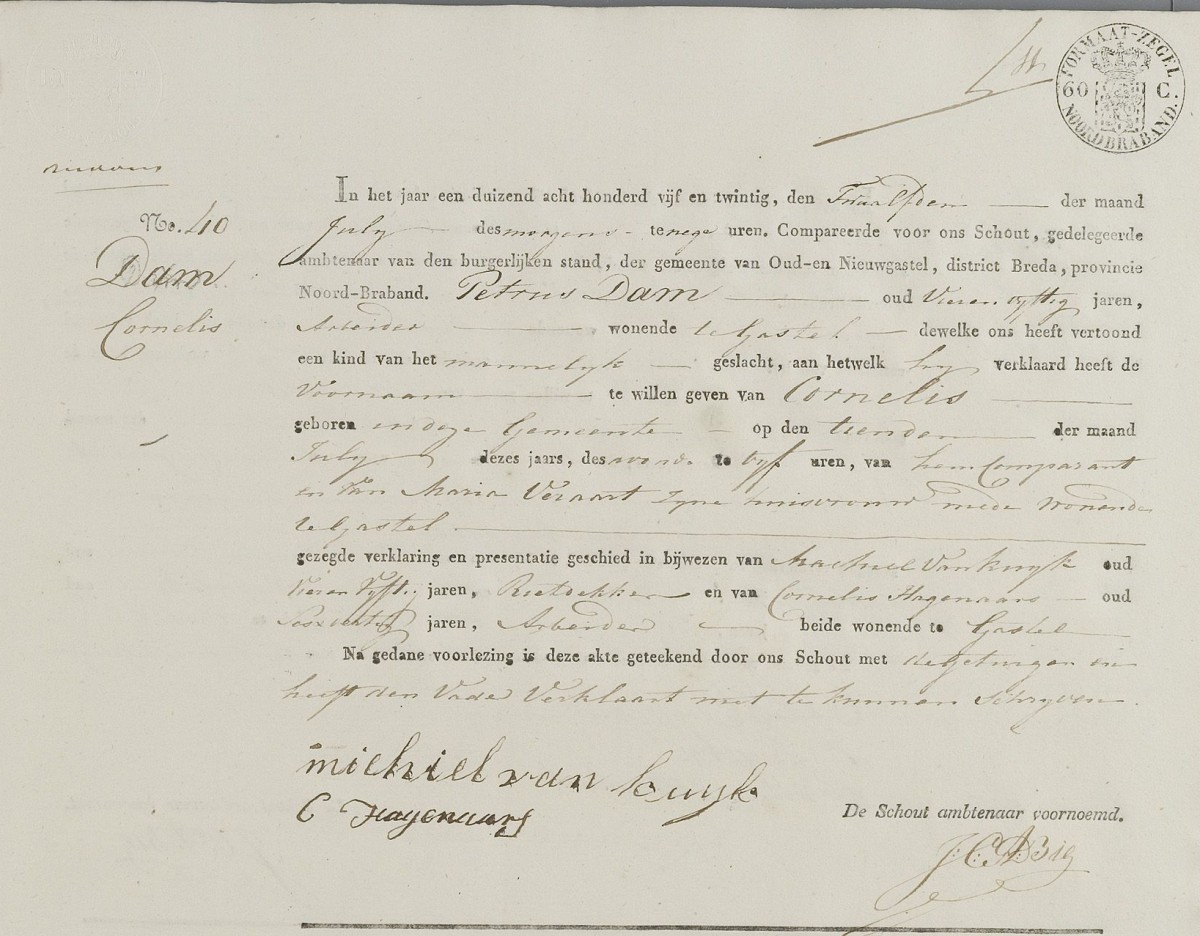 FORMAAT-ZEGEL
60 C.
NOORDBRABAND.
No. 40
Dam
Cornelis
In het jaar een duizend acht honderd vijf en twintig, den Twaalfden der maand
July des morgens te nege uren. Compareerde voor ons Schout, gedelegeerde
ambtenaar van den burgerlijken stand, der gemeente van Oud-en Nieuwgastel, district Breda, provincie
Noord-Braband. Petrus Dam oud Vier en vyftig jaren,
Arbeider wonende te Gastel dewelke ons heeft vertoond
een kind van het mannelyk geslacht, aan hetwelk hy verklaard heeft de
Voornaam te willen geven van Cornelis
geboren in deze Gemeente op den tienden der maand
July dezes jaars, des te vyf uren, van hem Comparant
en van Maria Veraart zyne huisvrouw mede wonende
te Gastel
gezegde verklaring en presentatie geschied in bijwezen van Machiel Van kuyk oud
Vier en Vyftig jaren, Rietdekker en van Cornelis Hagenaars oud
jaren, Arbeider beide wonende te Gastel
Na gedane voorlezing is deze akte geteekend door ons Schout met de getuigen en
heeft den Vader Verklaart niet te kunnen Schryven.
michiel van kuyk
C Hagenaars
De Schout ambtenaar voornoemd.